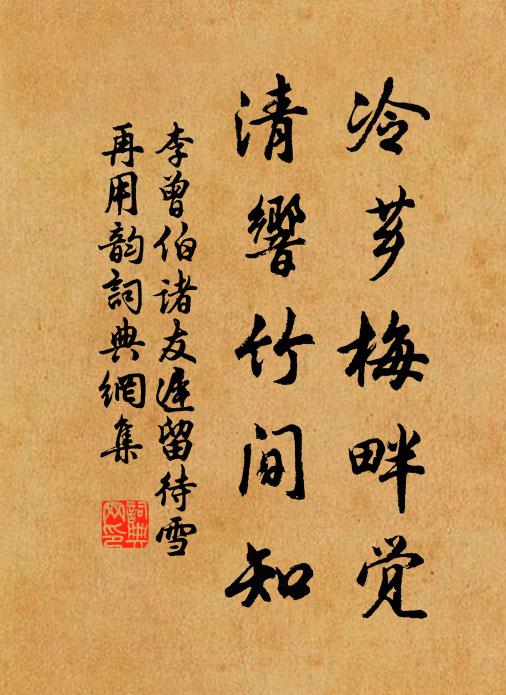 冷芗梅畔觉
清響竹间知
李曾伯諸友遲留待雪
再用韵詞典網集
詞典
网印